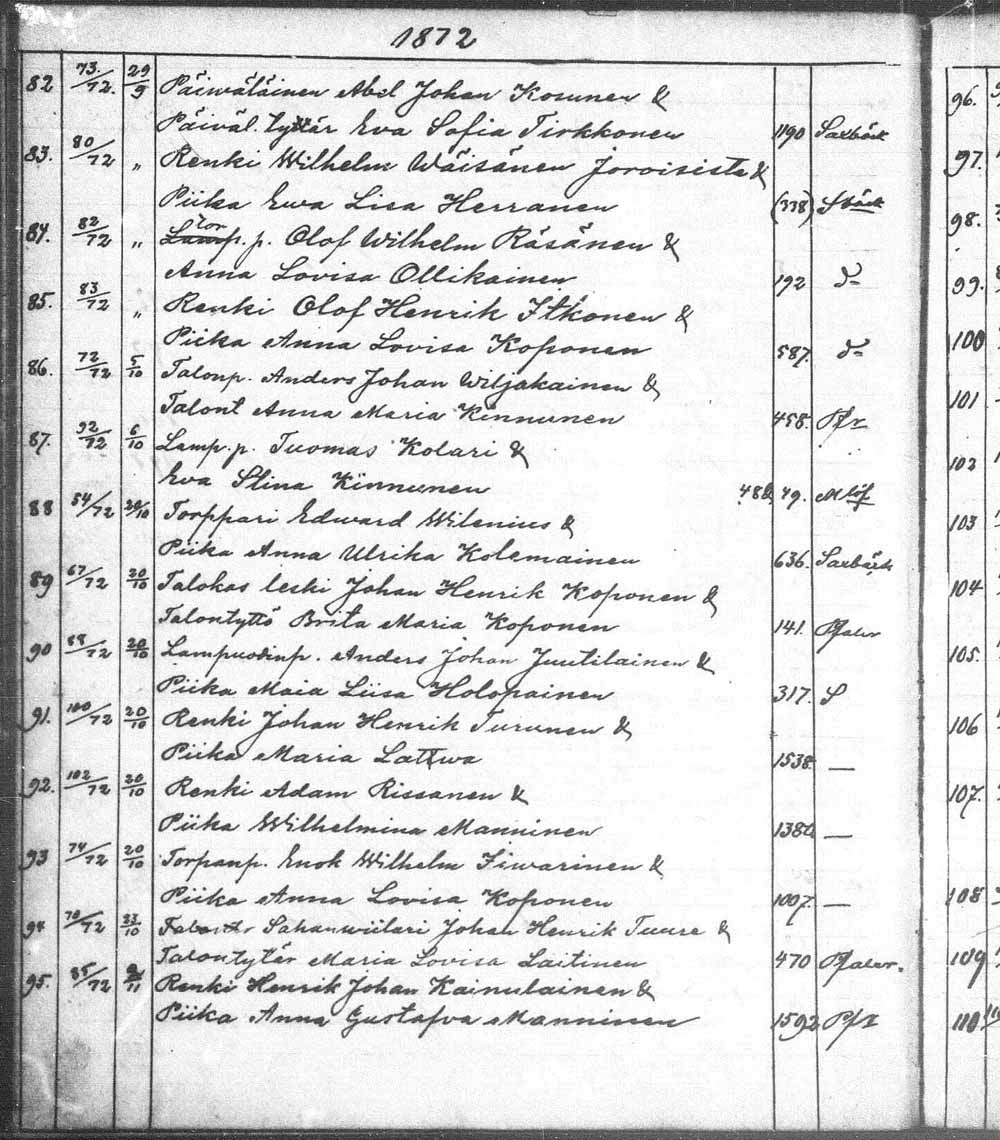 1872
82 73/72. 29/9 Päiwäläinen Abel Johan Kosunen &
Päiväl. tytär Eva Sofia Tirkkonen 1190 Saxbäck
83. 80/72 " Renki Wilhelm Wäisänen Joroisista &
Piika Ewa Lisa Herranen (338) Sbäck
84. 82/72 " Lamp. tor p. Olof Wilhelm Räsänen &
Anna Lovisa Ollikainen 192 d:
85. 83/72 " Renki Olof Henrik Itkonen &
Piika Anna Lovisa Koponen 587. d:
86. 72/72 5/10 Talonp. Anders Johan Wiljakainen &
Talont Anna Maria Kinnunen 458.
87. 92/72 6/10 Lamp. p. Tuomas Kolari &
Eva Stina Kinnunen 79. M löf
88 54/72 20/10 Torppari Edward Wilenius &
Piika Anna Ulrika Kolemainen 636. Saxbäck
89 67/72 20/10 Talokas leski Johan Henrik Koponen &
Talontyttö Brita Maria Koponen 141. Pfaler
90 88/72 20/10 Lampuodinp. Anders Johan Juutilainen &
Piika Maia Liisa Holopainen 317. S
91. 100/72 20/10 Renki Johan Henrik Turunen &
Piika Maria Lattwa 1538. —
92. 102/72 20/10 Renki Adam Rissanen &
Piika Wilhelmina Manninen —
93 74/72 20/10 Torpanp. Enok Wilhelm Iiwarinen &
Piika Anna Lovisa Koponen 1007. —
94 70/72 23/10 Sahanwiilari Johan Henrik Tuure &
Talontytär Maria Lovisa Laitinen 470 Pfaler.
95. 85/72 Renki Henrik Johan Kainulainen &
Piika Anna Gustafva Manninen 1592
96.
97.
98.
99.
100
101
102
103
104
105.
106
107.
108
109
110